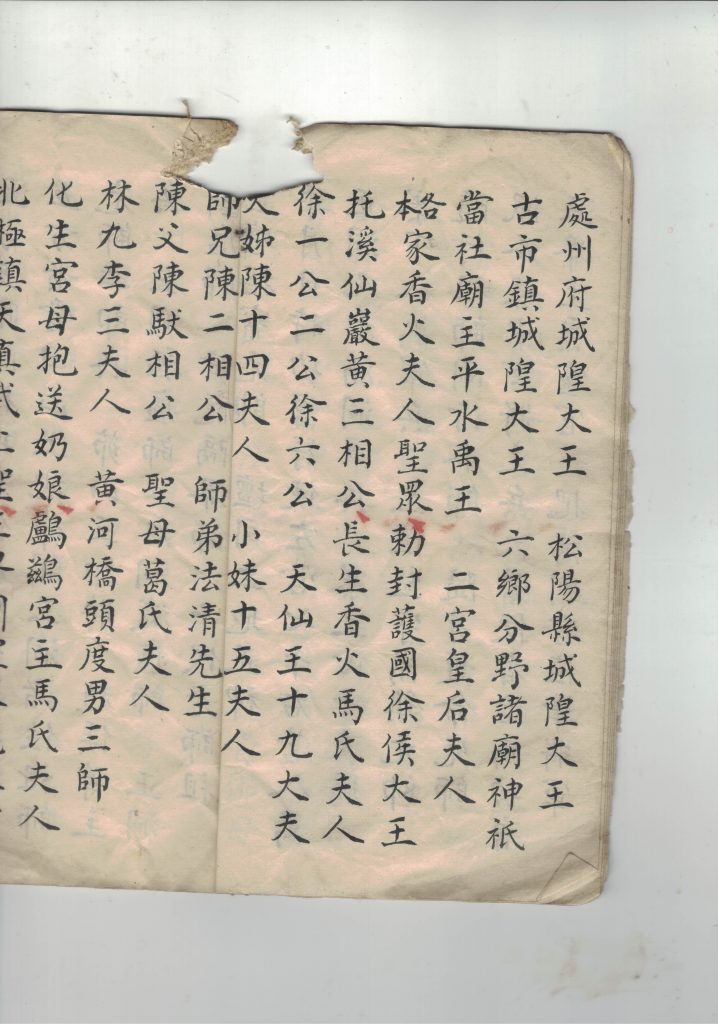 處州府城隍大王　松陽縣城隍大王
古市鎮城隍大王　六鄉分野諸廟神祇
當社廟主平水禹王　二宮皇后夫人
各本家香火夫人聖眾勅封護國徐侯大王
托溪仙巖黃三相公長生香火馬氏夫人
徐一公二公徐六公　天仙王十九大夫
大姊陳十四夫人　小妹十五夫人
師兄陳二相公　師弟法清先生
陳父陳馱相公　聖母葛氏夫人
林九李三夫人　黃河橋頭度男三師
化生宮母抱送奶娘鸕鷀宮主馬氏夫人
北極鎮天真武上聖